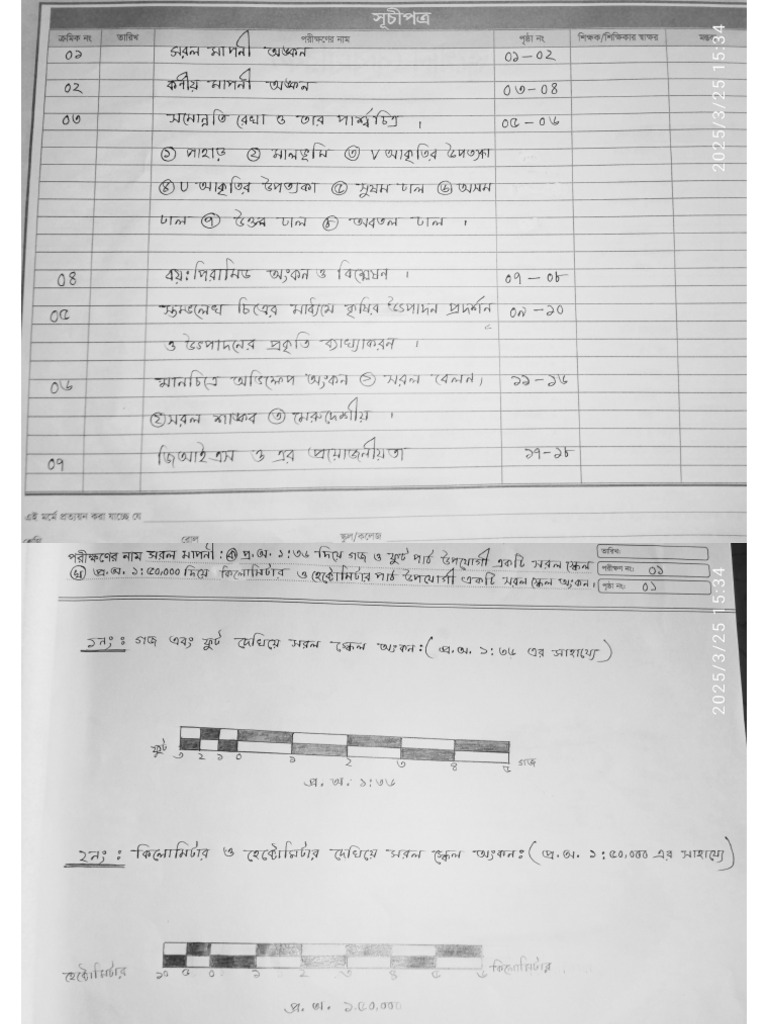 সূচীপত্র
ক্রমিক নং তারিখ পরীক্ষণের নাম পৃষ্ঠা নং শিক্ষক/শিক্ষিকার স্বাক্ষর
০১ সরল মাপনী অঙ্কন ০১-০২
০২ কর্ণীয় মাপনী অঙ্কন ০৩-০৪
০৩ সমোন্নতি রেখা ও তার পার্শ্বচিত্র । ০৫-০৬
① পাহাড় ② মালভূমি ③ V আকৃতির উপত্যকা
④ U আকৃতির উপত্যকা ⑤ সুষম ঢাল ⑥ অসম
ঢাল ⑦ উত্তল ঢাল ⑧ অবতল ঢাল ।
০৪ বয়: পিরামিড অংকন ও বিশ্লেষন । ০৭-০৮
০৫ স্তম্ভলেখ চিত্রের মাধ্যমে কৃষির উৎপাদন প্রদর্শন ০৯-১০
ও উৎপাদনের প্রকৃতি ব্যাখ্যাকরন ।
০৬ মানচিত্র অভিক্ষেপ অংকন ① সরল বেলন, ১১-১৬
② সরল শাঙ্কব ③ মেরুদেশীয় ।
০৭ জিআইএস ও এর প্রয়োজনীয়তা ১৭-১৮
এই মর্মে প্রত্যয়ন করা যাচ্ছে যে
রোল স্কুল/কলেজ
2025/3/25 15:34
পরীক্ষণের নাম সরল মাপনী: ক প্র.অ. ১:৩৬ দিয়ে গজ ও ফুট পাঠ উপযোগী একটি সরল স্কেল তারিখ:
খ প্র.অ. ১:৫০,০০০ দিয়ে কিলোমিটার ও হেক্টোমিটার পাঠ উপযোগী একটি সরল স্কেল অংকন। পরীক্ষণ নং: ০১
পৃষ্ঠা নং: ০১
১নং: গজ এবং ফুট দেখিয়ে সরল স্কেল অংকন: (প্র.অ. ১:৩৬ এর সাহায্যে)
ফুট ৩ ২ ১ ০ ১ ২ ৩ ৪ ৫ গজ
প্র. অ. ১:৩৬
২নং: কিলোমিটার ও হেক্টোমিটার দেখিয়ে সরল স্কেল অংকন: (প্র.অ. ১:৫০,০০০ এর সাহায্যে)
হেক্টোমিটার ১০ ৫ ০ ১ ২ ৩ ৪ ৫ ৬ কিলোমিটার
প্র. অ. ১:৫০,০০০
2025/3/25 15:34